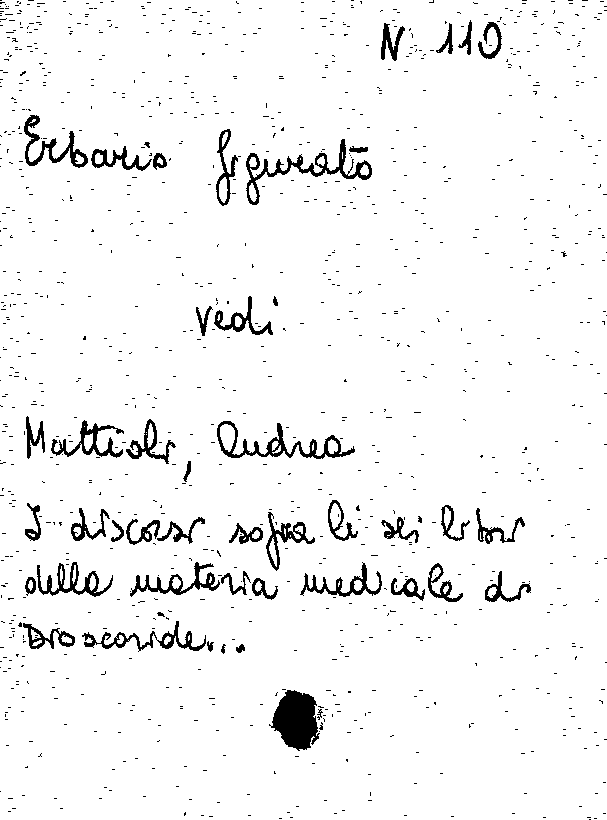 N 110
Erbario figurato
vedi
Mattioli, Andrea
I discorsi sopra li sei libri
della materia medicale di
Dioscoride...